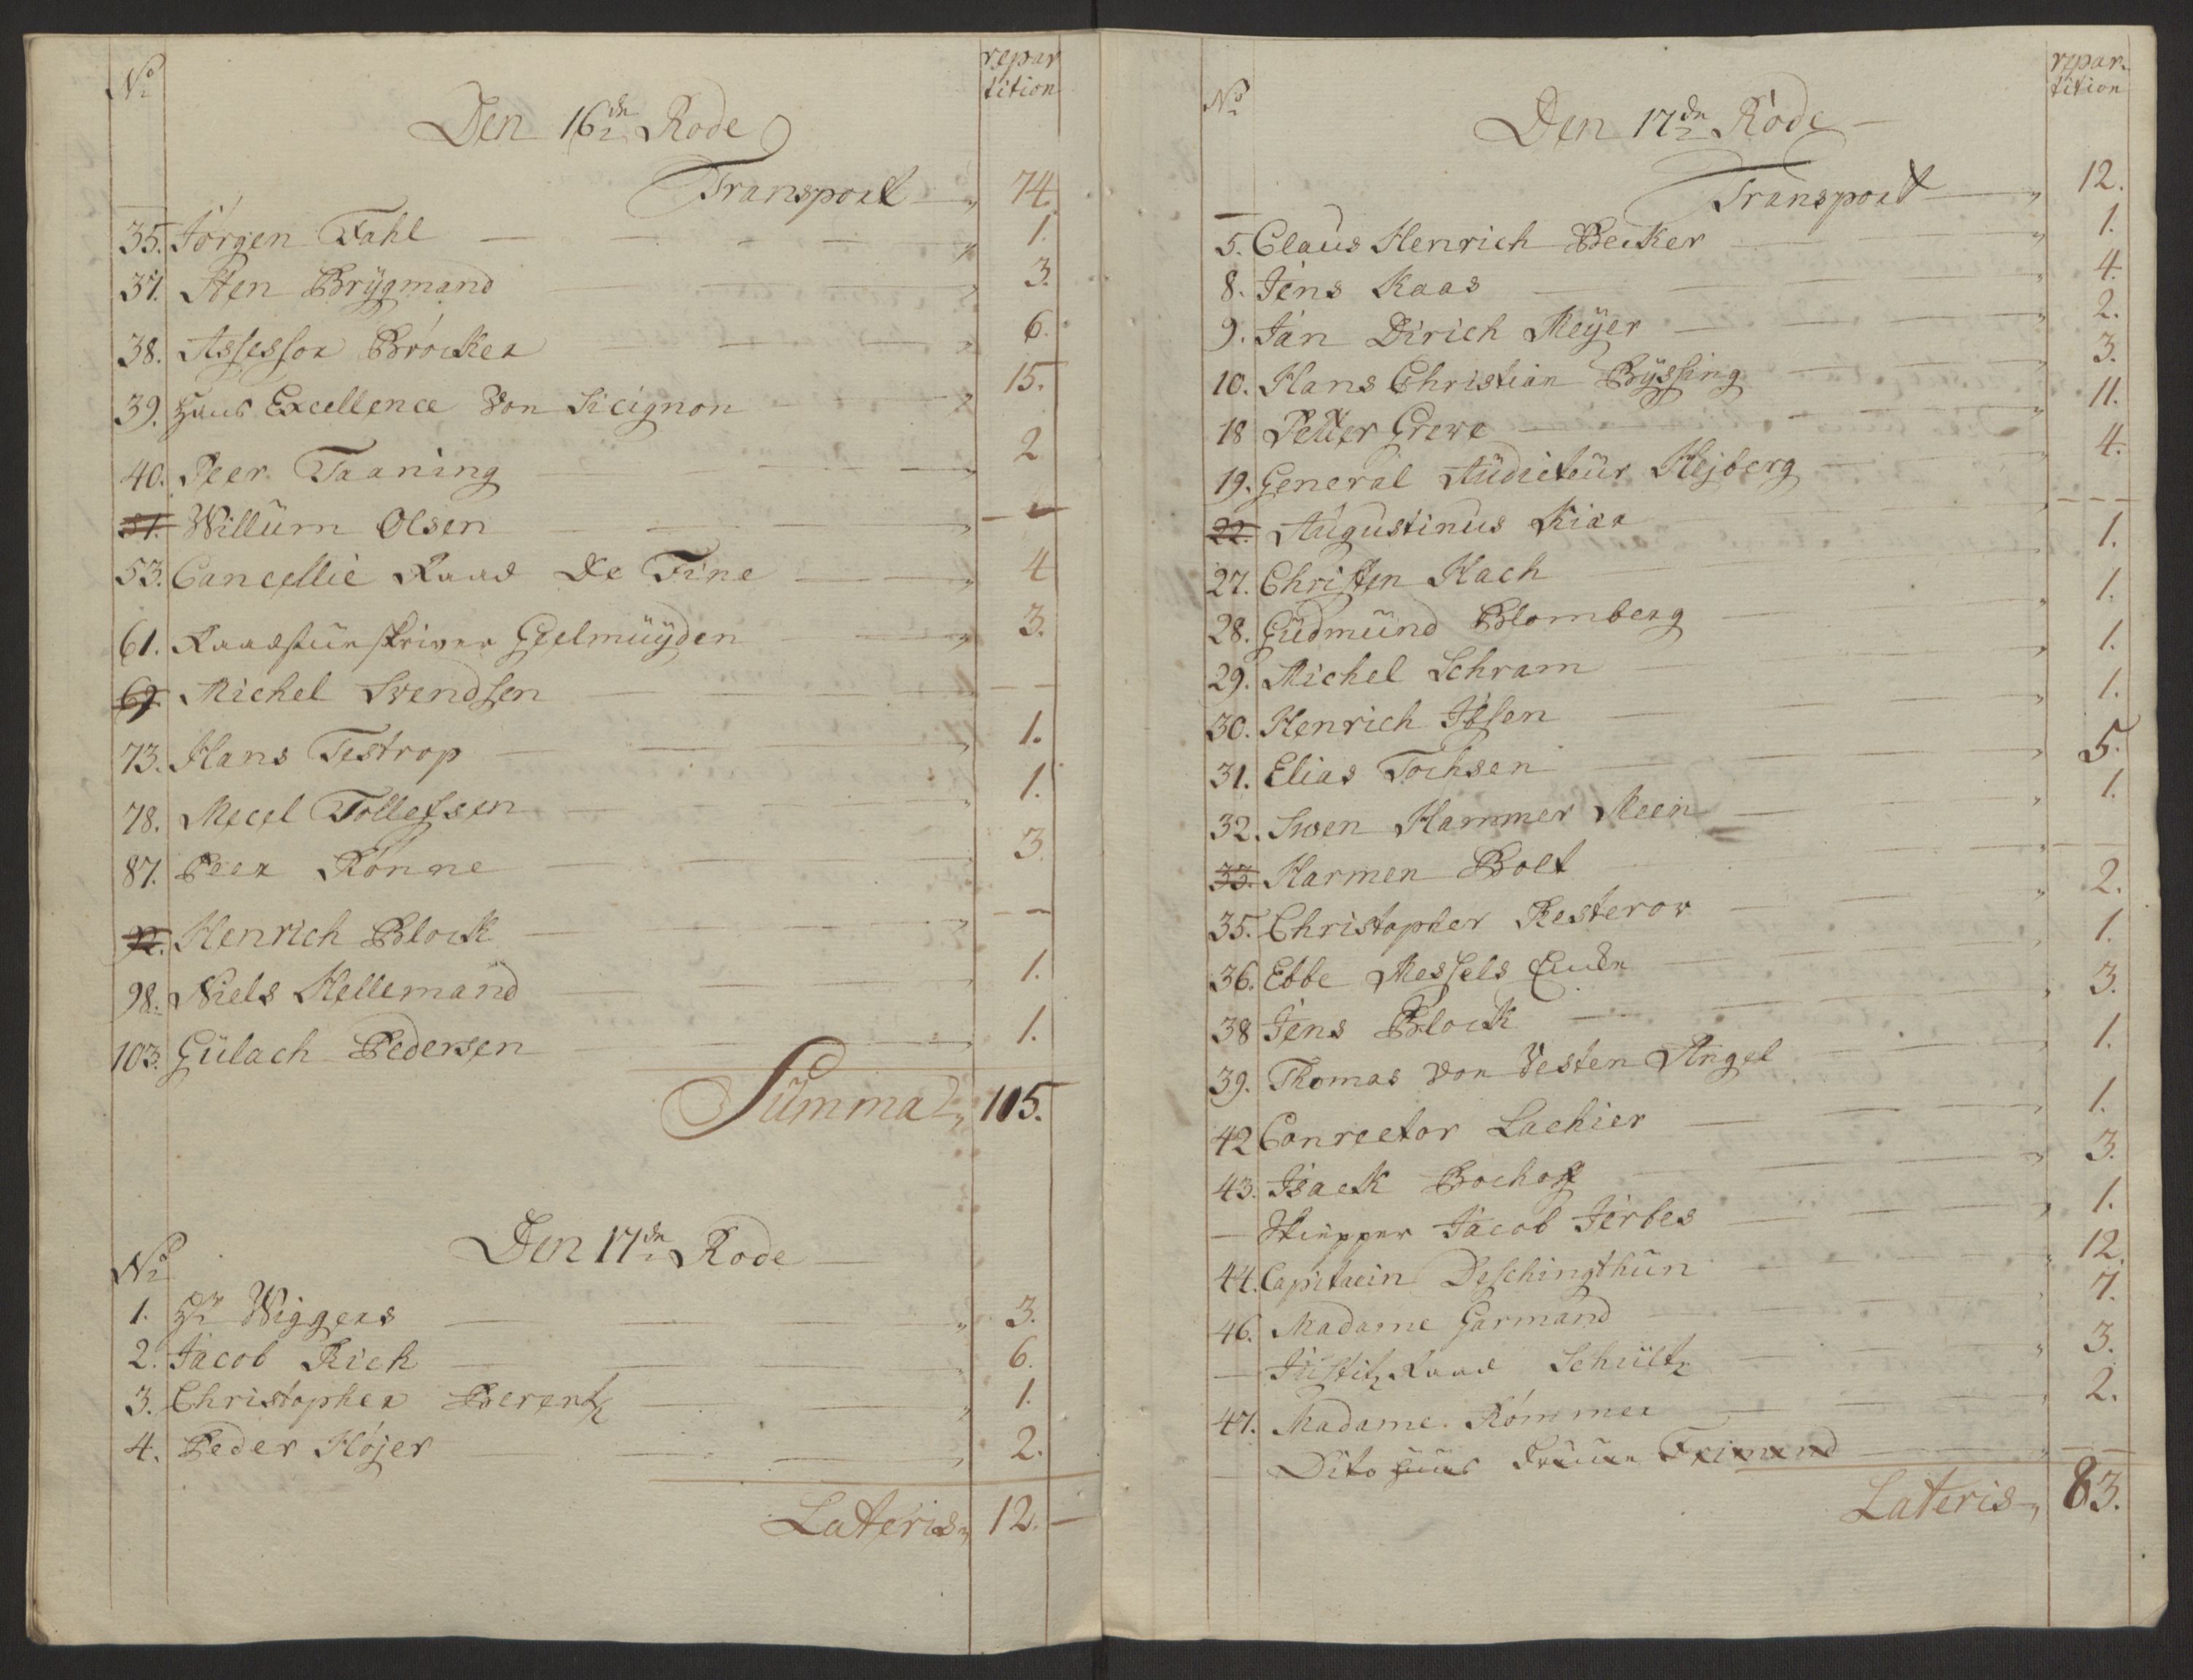 No
repar
tition
Den 16de Rode
Transport „ 74.
35. Jørgen Fahl „ 1.
37. Sten Brÿgmand „ 3.
38. Assessor Brøcker „ 6.
39. Hans Excellence Von Sicignon „ 15.
40. Peer Taaning „ 2
51. Willum Olsen „ —
53. Cancellie Raad De Fine „ 4
61. Raadstueskriver Geelmuÿden „ 3.
69. Michel Svendsen „ — —
73. Hans Testrop „ 1.
78. Mecel Tollefsen „ 1.
87. Peer Rønne „ 3.
92. Henrich Block „ — —
98. Niels Kellemand „ 1.
103. Gülach Pedersen „ 1.
Summa „ 105.
Den 17de Rode
No
1. Hr Wiggers „ 3.
2. Jacob Rich „ 6.
3. Christopher Berentz „ 1.
4. Peder Højer „ 2.
Lateris „ 12. —
No
repar-
tition
Den 17de Rode
Transport „ 12.
5. Claus Henrich Becker „ 1.
8. Jens Kaas „ 4.
9. Jan Dirich Meÿer „ 2.
10. Hans Christian Bÿssing „ 3.
18 Petter Greve „ 11.
19. General Auditeur Hejberg „ 4.
22. Augustinus Kiær „ — — —
27. Christen Hach „ 1.
28. Gudmund Blomberg „ 1.
29. Michel Schram „ 1.
30. Henrich Ibsen „ 1.
31. Elias Tochsen „ 5.
32. Swen Hammer Meen „ 1.
33. Harmen Bolt „ — —
35. Christopher Resterov „ 2.
36. Ebbe Messels Enke „ 1.
38 Jens Block „ 3.
39. Thomas von Vesten Angel „ 1.
42 Conrector Lachier „ 1.
43. Isack Bochoff „ 3.
— Skipper Jacob Jerbes „ 1.
44. Capitaein Deschingthun „ 12.
46. Madame Garmand „ 7.
— Justitz Raad Schültz „ 3.
47. Madame Rømmer „ 2.
— Dito huus Fruen Freimand „ — —
Lateris „ 83.